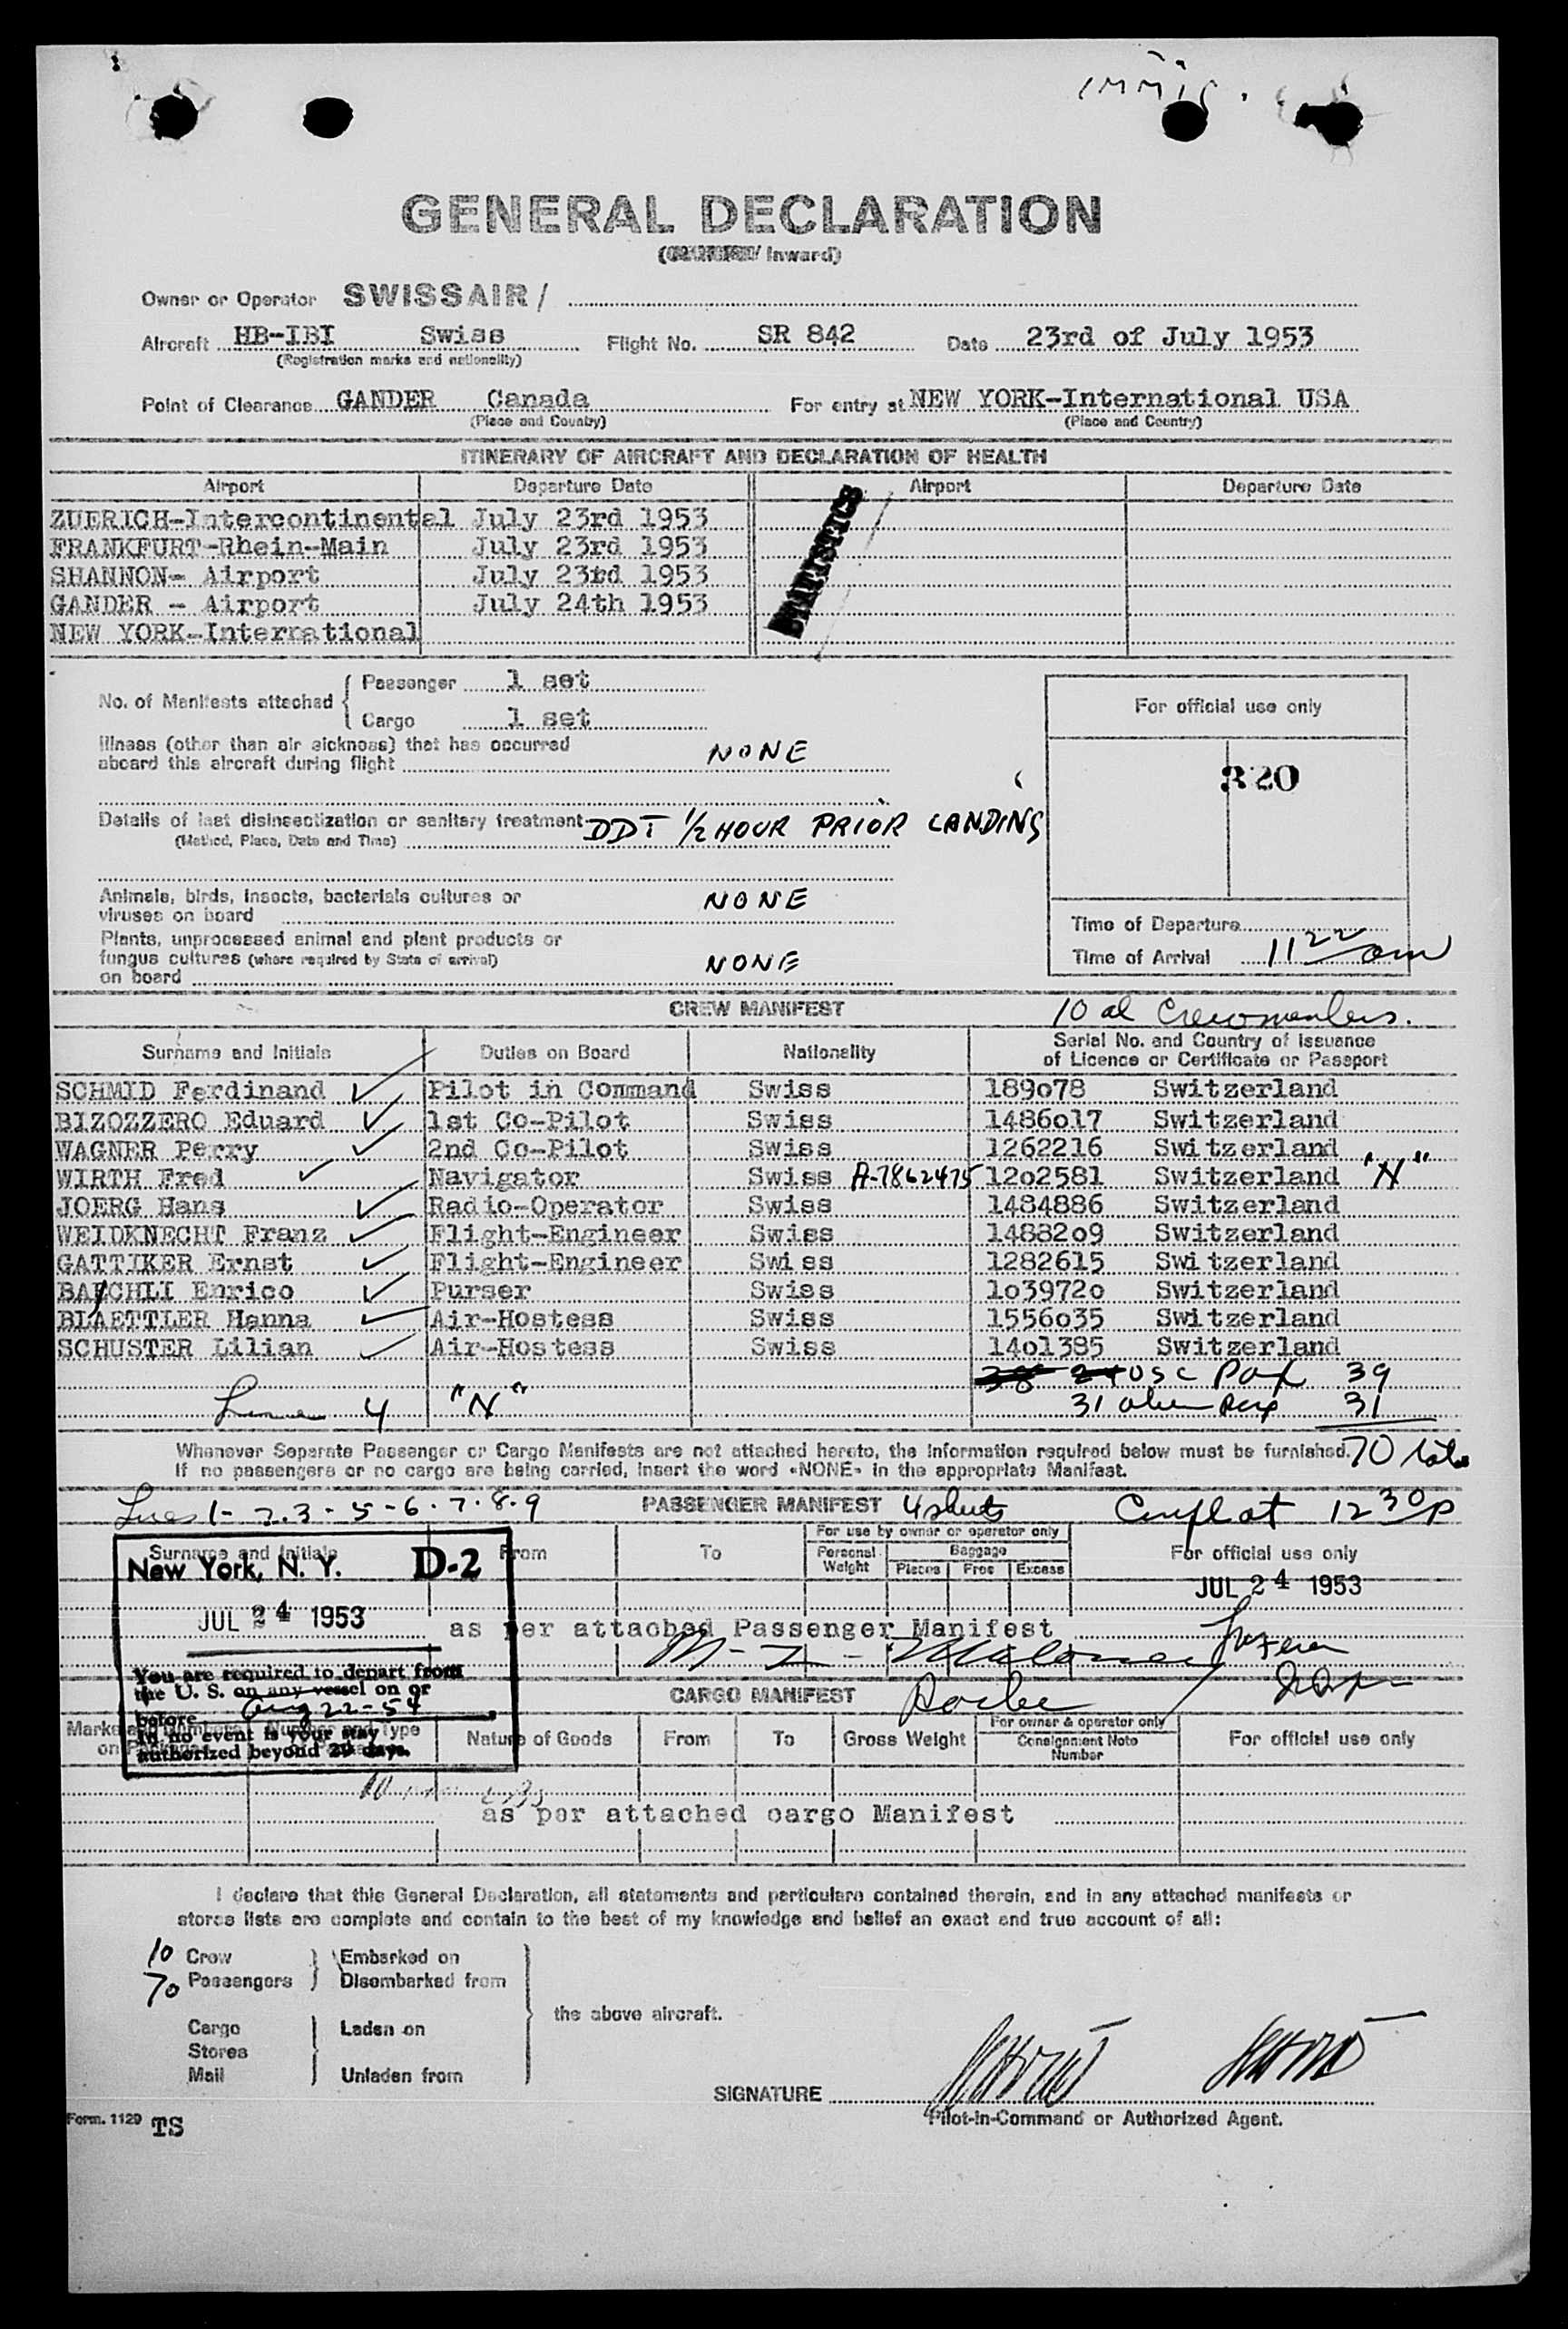 immig.
GENERAL DECLARATION
( / Inward)
Owner or Operator SWISSAIR /
Aircraft HB-IBI Swiss Flight No. SR 842 Date 23rd of July 1953
(Registration marks and nationality)
Point of Clearance GANDER Canada For entry at NEW YORK-International USA
(Place and Country) (Place and Country)
ITINERARY OF AIRCRAFT AND DECLARATION OF HEALTH
Airport Departure Date Airport Departure Date
ZUERICH-Intercontinental July 23rd 1953
FRANKFURT-Rhein-Main July 23rd 1953
SHANNON- Airport July 23rd 1953
GANDER - Airport July 24th 1953
NEW YORK-International
STATISTICS
No. of Manifests attached { Passenger 1 set
Cargo 1 set
For official use only
Illness (other than air sickness) that has occurred
aboard this aircraft during flight NONE
320
Details of last disinsectization or sanitary treatment DDT 1/2 HOUR PRIOR LANDING
(Method, Place, Date and Time)
Animals, birds, insects, bacterials cultures or
viruses on board NONE
Time of Departure
Plants, unprocessed animal and plant products or
fungus cultures (where required by State of arrival)
on board NONE
Time of Arrival 11 22 am
CREW MANIFEST 10 al Crewmembers.
Surname and Initials Duties on Board Nationality Serial No. and Country of Issuance
of Licence or Certificate or Passport
SCHMID Ferdinand ✓ Pilot in Command Swiss 189o78 Switzerland
BIZOZZERO Eduard ✓ 1st Co-Pilot Swiss 1486o17 Switzerland
WAGNER Perry ✓ 2nd Co-Pilot Swiss 1262216 Switzerland
WIRTH Fred ✓ Navigator Swiss A-7862475 12o2581 Switzerland "N"
JOERG Hans ✓ Radio-Operator Swiss 1484886 Switzerland
WEIDKNECHT Franz ✓ Flight-Engineer Swiss 14882o9 Switzerland
GATTIKER Ernst ✓ Flight-Engineer Swiss 1282615 Switzerland
BAECHLI Enrico ✓ Purser Swiss 1o3972o Switzerland
BLAETTLER Hanna ✓ Air-Hostess Swiss 1556o35 Switzerland
SCHUSTER Lilian ✓ Air-Hostess Swiss 14o1385 Switzerland
38 24 USC Pax 39
4 "N" 31 alien pax 31
Whenever Separate Passenger or Cargo Manifests are not attached hereto, the information required below must be furnished. 70 total
If no passengers or no cargo are being carried, insert the word «NONE» in the appropriate Manifest.
Lines 1-2.3-5-6.7.8.9 PASSENGER MANIFEST 4 sheets 12 30 p
Surname and Initials From To For use by owner or operator only For official use only
Personal Weight Baggage
Pieces Free Excess
New York, N. Y. D-2
JUL 24 1953
JUL 24 1953
as per attached Passenger Manifest
You are required to depart from
the U. S. on any vessel on or
before Aug 22-54
In no event is your stay
authorized beyond 29 days.
CARGO MANIFEST
Marks and Numbers on Packages Number and Type Nature of Goods From To Gross Weight For owner & operator only For official use only
Consignment Note
Number
as per attached cargo Manifest
I declare that this General Declaration, all statements and particulars contained therein, and in any attached manifests or
stores lists are complete and contain to the best of my knowledge and belief an exact and true account of all:
10 Crew } Embarked on
70 Passengers } Disembarked from
the above aircraft.
Cargo Laden on
Stores
Mail Unladen from
SIGNATURE
Pilot-in-Command or Authorized Agent.
Form. 1129 TS